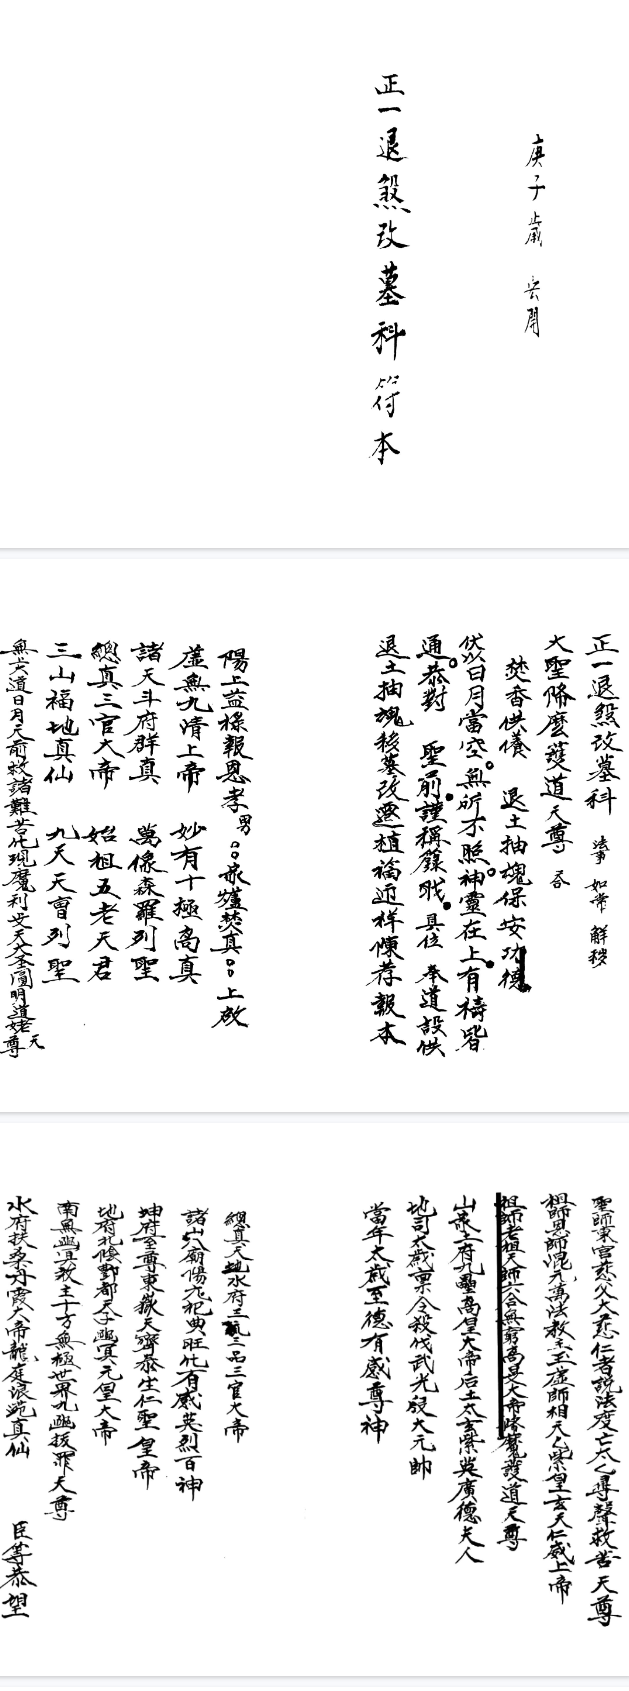 庚子歲 呉開
正一退煞改墓科符本
正一退煞改墓科 法事 如常 解穢
大聖降魔護道天尊 吞
焚香供養 退土抽魂保安功德
伏以日月當空無所不照神靈在上有禱皆
通恭對 聖前謹稱籙职具位 奉道設供
退土抽魂移墓改遷植福迎祥陳荐報本
陽上益祿報恩孝男 家爐焚真 上啟
虛無九清上帝 妙有十極高真
諸天斗府群真 萬像森羅列聖
總真三官大帝 始祖五老天君
三山福地真仙 九天天曹列聖
無上道日月天前救諸難苦化現魔利支天大圣圓明道姥天尊
聖師東宮慈父大慈仁者說法度亡太乙尋聲救苦天尊
祖師恩師混元萬法教主玉虛師相天乙紫皇玄天仁威上帝
祖師老祖天師六合無窮高明大帝降魔護道天尊
山家土府九壘高皇大帝后土太玄紫英廣德夫人
地司太歲禀令殺伐武光殷大元帥
當年太歲至德有感尊神
總真天地水府三元三品三官大帝
諸山八廟陽元祀典旺化有感英烈百神
坤府至尊東嶽天齊泰生仁聖皇帝
地府北陰酆都天子幽冥元皇大帝
南無幽冥教主十方無極世界九幽拔罪天尊
水府扶桑丹霞大帝龍廷浪苑真仙 臣等恭望